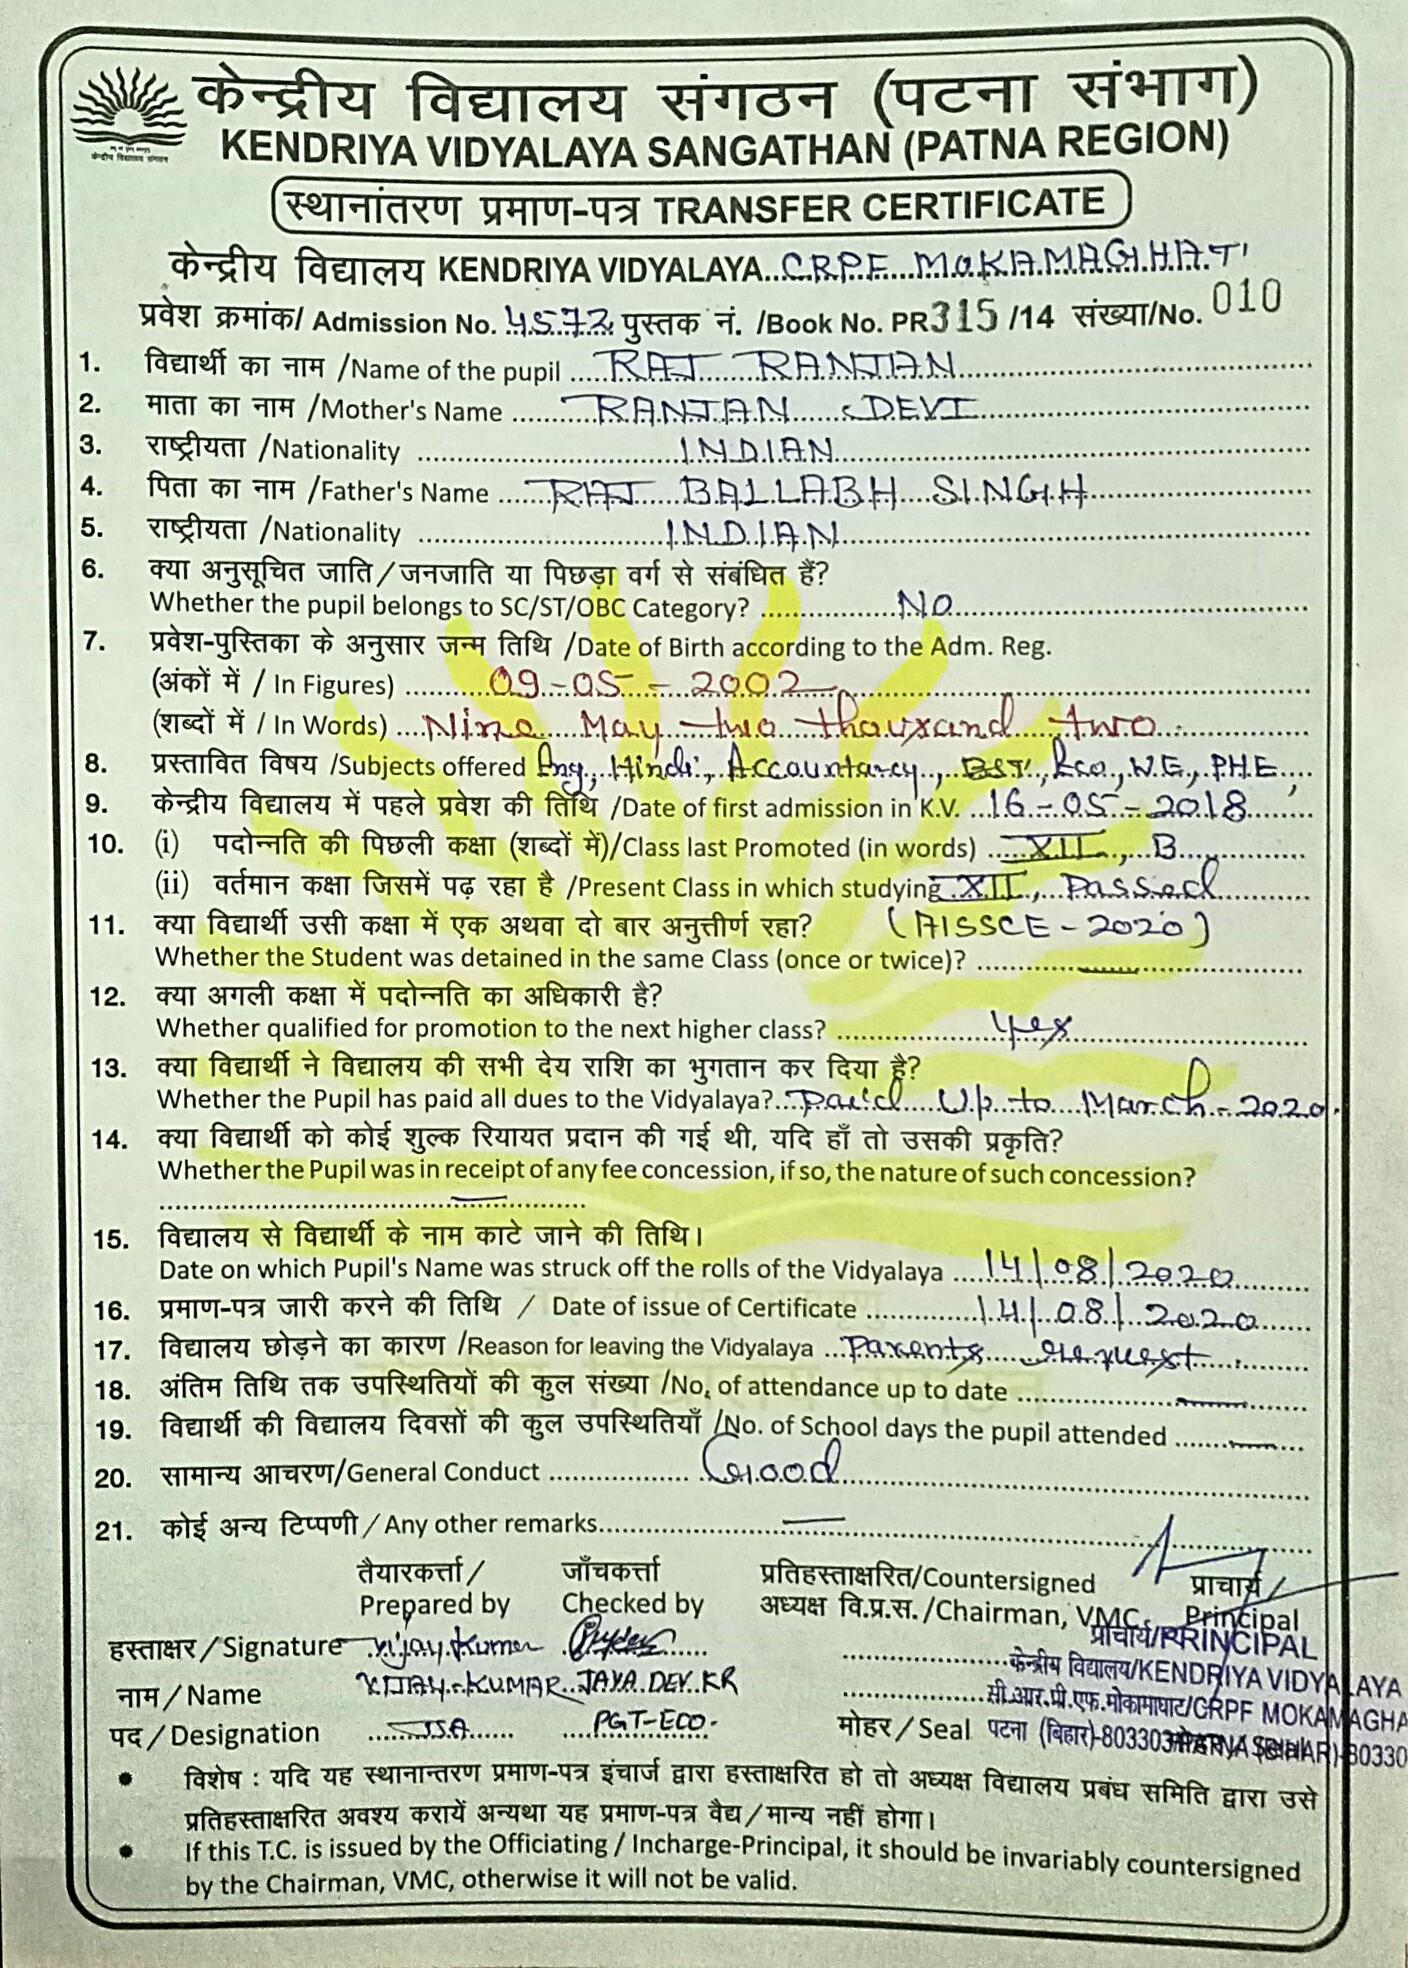 केन्द्रीय विद्यालय संगठन (पटना संभाग)
KENDRIYA VIDYALAYA SANGATHAN (PATNA REGION)
केन्द्रीय विद्यालय संगठन
स्थानांतरण प्रमाण-पत्र TRANSFER CERTIFICATE
केन्द्रीय विद्यालय KENDRIYA VIDYALAYA..CRPF MOKAMAGHAT
प्रवेश क्रमांक/ Admission No. 4572 पुस्तक नं. /Book No. PR315 /14 संख्या/No. 010
1. विद्यार्थी का नाम /Name of the pupil ..... RAJ RANJAN
2. माता का नाम /Mother's Name ..... RANJAN DEVI
3. राष्ट्रीयता /Nationality ..... INDIAN
4. पिता का नाम /Father's Name ..... RAJ BALLABH SINGH
5. राष्ट्रीयता /Nationality ..... INDIAN
6. क्या अनुसूचित जाति/जनजाति या पिछड़ा वर्ग से संबंधित हैं?
Whether the pupil belongs to SC/ST/OBC Category? ..... No
7. प्रवेश-पुस्तिका के अनुसार जन्म तिथि /Date of Birth according to the Adm. Reg.
(अंकों में / In Figures) ..... 09-05-2002
(शब्दों में / In Words) .... Nine May two thousand two
8. प्रस्तावित विषय /Subjects offered Eng, Hindi, Accountancy, BST, Eco, W.E., PHE
9. केन्द्रीय विद्यालय में पहले प्रवेश की तिथि /Date of first admission in K.V. ..16-05-2018
10. (i) पदोन्नति की पिछली कक्षा (शब्दों में)/Class last Promoted (in words) ..... XII, B
(ii) वर्तमान कक्षा जिसमें पढ़ रहा है /Present Class in which studying XII, Passed
11. क्या विद्यार्थी उसी कक्षा में एक अथवा दो बार अनुत्तीर्ण रहा? (AISSCE-2020)
Whether the Student was detained in the same Class (once or twice)? ..... —
12. क्या अगली कक्षा में पदोन्नति का अधिकारी है?
Whether qualified for promotion to the next higher class? ..... yes
13. क्या विद्यार्थी ने विद्यालय की सभी देय राशि का भुगतान कर दिया है?
Whether the Pupil has paid all dues to the Vidyalaya? Paid Up to March-2020.
14. क्या विद्यार्थी को कोई शुल्क रियायत प्रदान की गई थी, यदि हाँ तो उसकी प्रकृति?
Whether the Pupil was in receipt of any fee concession, if so, the nature of such concession?
..... —
15. विद्यालय से विद्यार्थी के नाम काटे जाने की तिथि।
Date on which Pupil's Name was struck off the rolls of the Vidyalaya .... 14/08/2020
16. प्रमाण-पत्र जारी करने की तिथि / Date of issue of Certificate ..... 14/08/2020
17. विद्यालय छोड़ने का कारण /Reason for leaving the Vidyalaya ... Parents request
18. अंतिम तिथि तक उपस्थितियों की कुल संख्या /No. of attendance up to date ..... —
19. विद्यार्थी की विद्यालय दिवसों की कुल उपस्थितियाँ /No. of School days the pupil attended ..... —
20. सामान्य आचरण/General Conduct ..... Good
21. कोई अन्य टिप्पणी/Any other remarks..... —
तैयारकर्त्ता/ जाँचकर्त्ता प्रतिहस्ताक्षरित/Countersigned प्राचार्य/
Prepared by Checked by अध्यक्ष वि.प्र.स./Chairman, VMC Principal
प्राचार्य/PRINCIPAL
हस्ताक्षर/Signature Vijay Kumar
केन्द्रीय विद्यालय/KENDRIYA VIDYALAYA
नाम/Name VIJAY KUMAR JAYA DEV KR
सी.आर.पी.एफ.मोकामाघाट/CRPF MOKAMAGHA
पद/Designation JSA PGT-ECO. मोहर/Seal पटना (बिहार)-803303
• विशेष : यदि यह स्थानान्तरण प्रमाण-पत्र इंचार्ज द्वारा हस्ताक्षरित हो तो अध्यक्ष विद्यालय प्रबंध समिति द्वारा उसे
प्रतिहस्ताक्षरित अवश्य करायें अन्यथा यह प्रमाण-पत्र वैद्य/मान्य नहीं होगा।
• If this T.C. is issued by the Officiating / Incharge-Principal, it should be invariably countersigned
by the Chairman, VMC, otherwise it will not be valid.